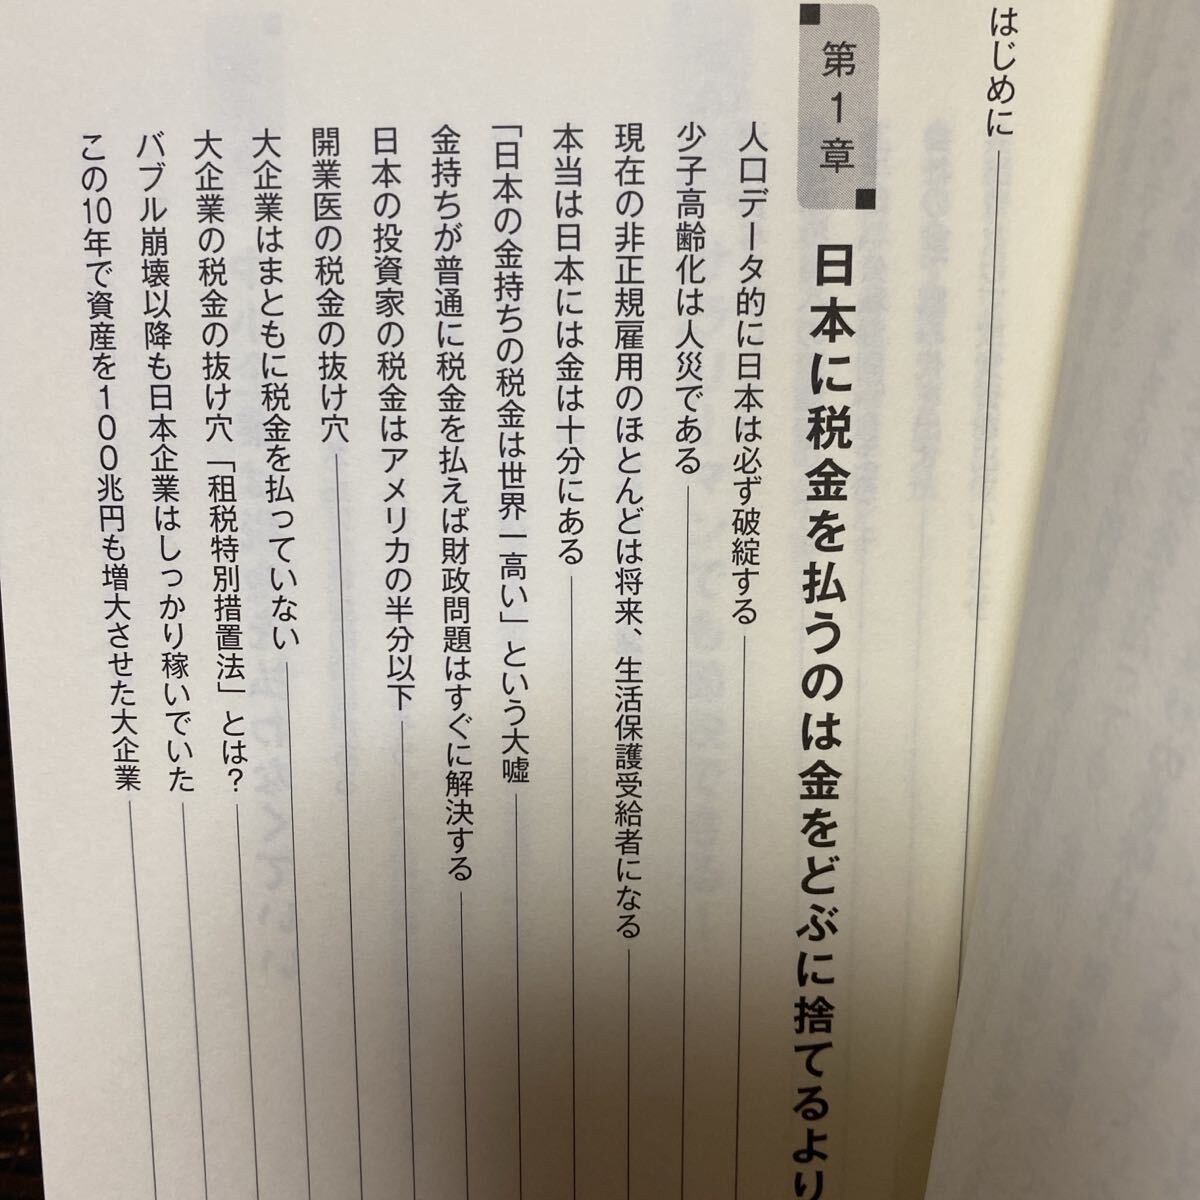 はじめに
第1章
日本に税金を払うのは金をどぶに捨てるより
人口データ的に日本は必ず破綻する
少子高齢化は人災である
現在の非正規雇用のほとんどは将来、生活保護受給者になる
本当は日本には金は十分にある
「日本の金持ちの税金は世界一高い」という大嘘
金持ちが普通に税金を払えば財政問題はすぐに解決する
日本の投資家の税金はアメリカの半分以下
開業医の税金の抜け穴
大企業はまともに税金を払っていない
大企業の税金の抜け穴「租税特別措置法」とは?
バブル崩壊以降も日本企業はしっかり稼いでいた
この10年で資産を100兆円も増大させた大企業